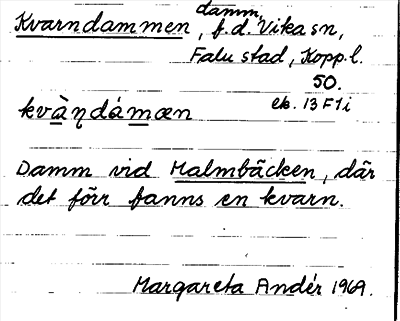 damm,
Kvarndammen, f.d. Vika sn,
Falu stad, Kopp. l.
50.
ek. 13 F1i
kvàɳdámæn
Damm vid Malmbäcken, där
det förr fanns en kvarn.
Margareta Andér 1969.